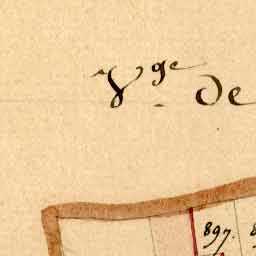 Vge de
897. 8